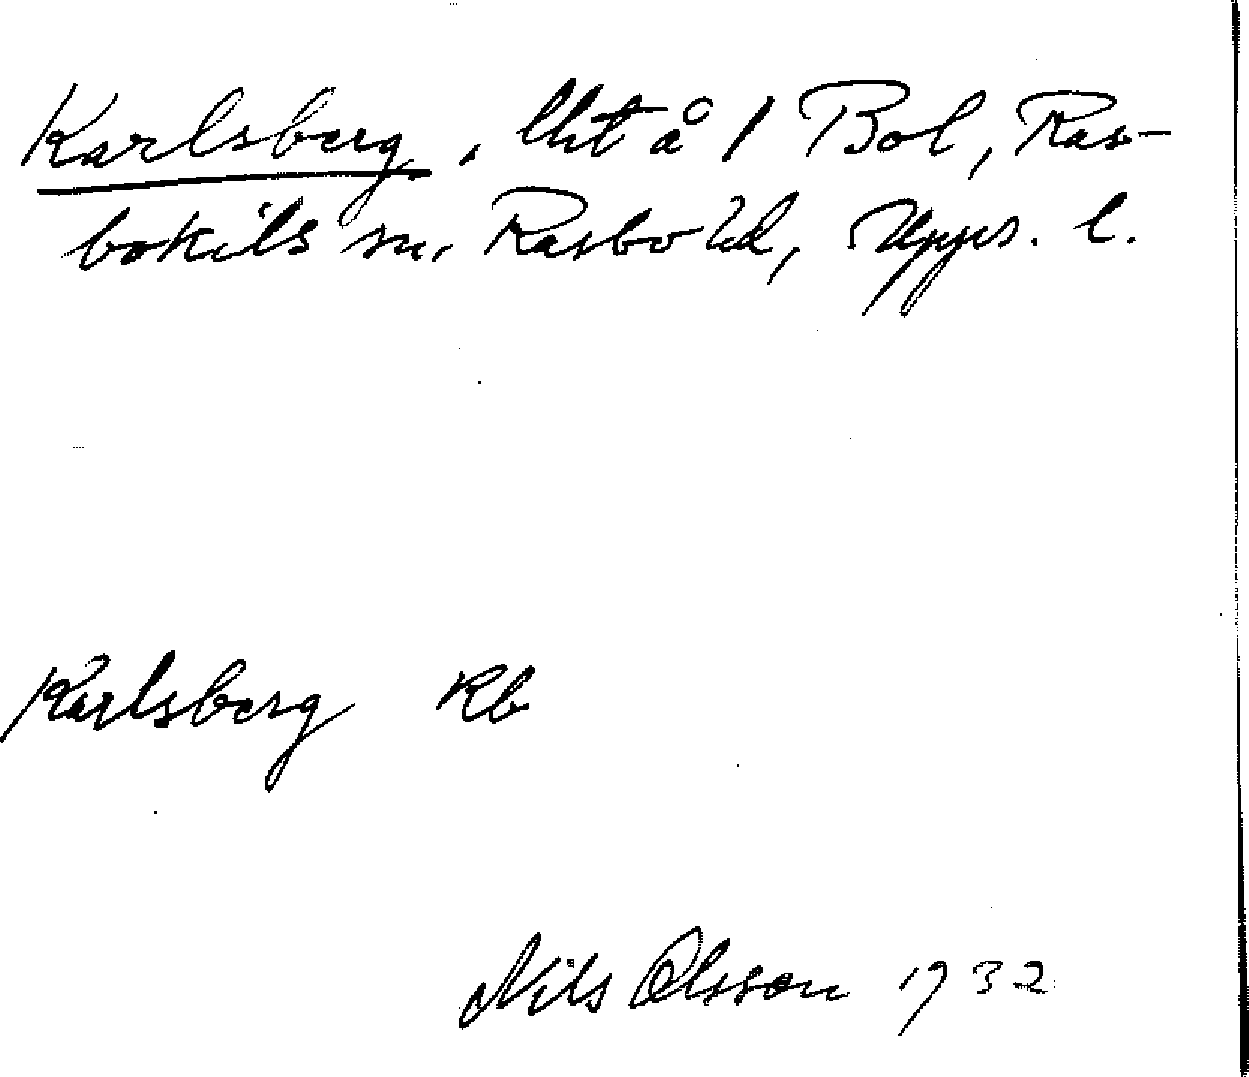 Karlsberg, lht å 1 Bol, Ras-
bokils sn, Rasbo hd, Upps. l.
Karlsberg Rb
Nils Olsson 1932